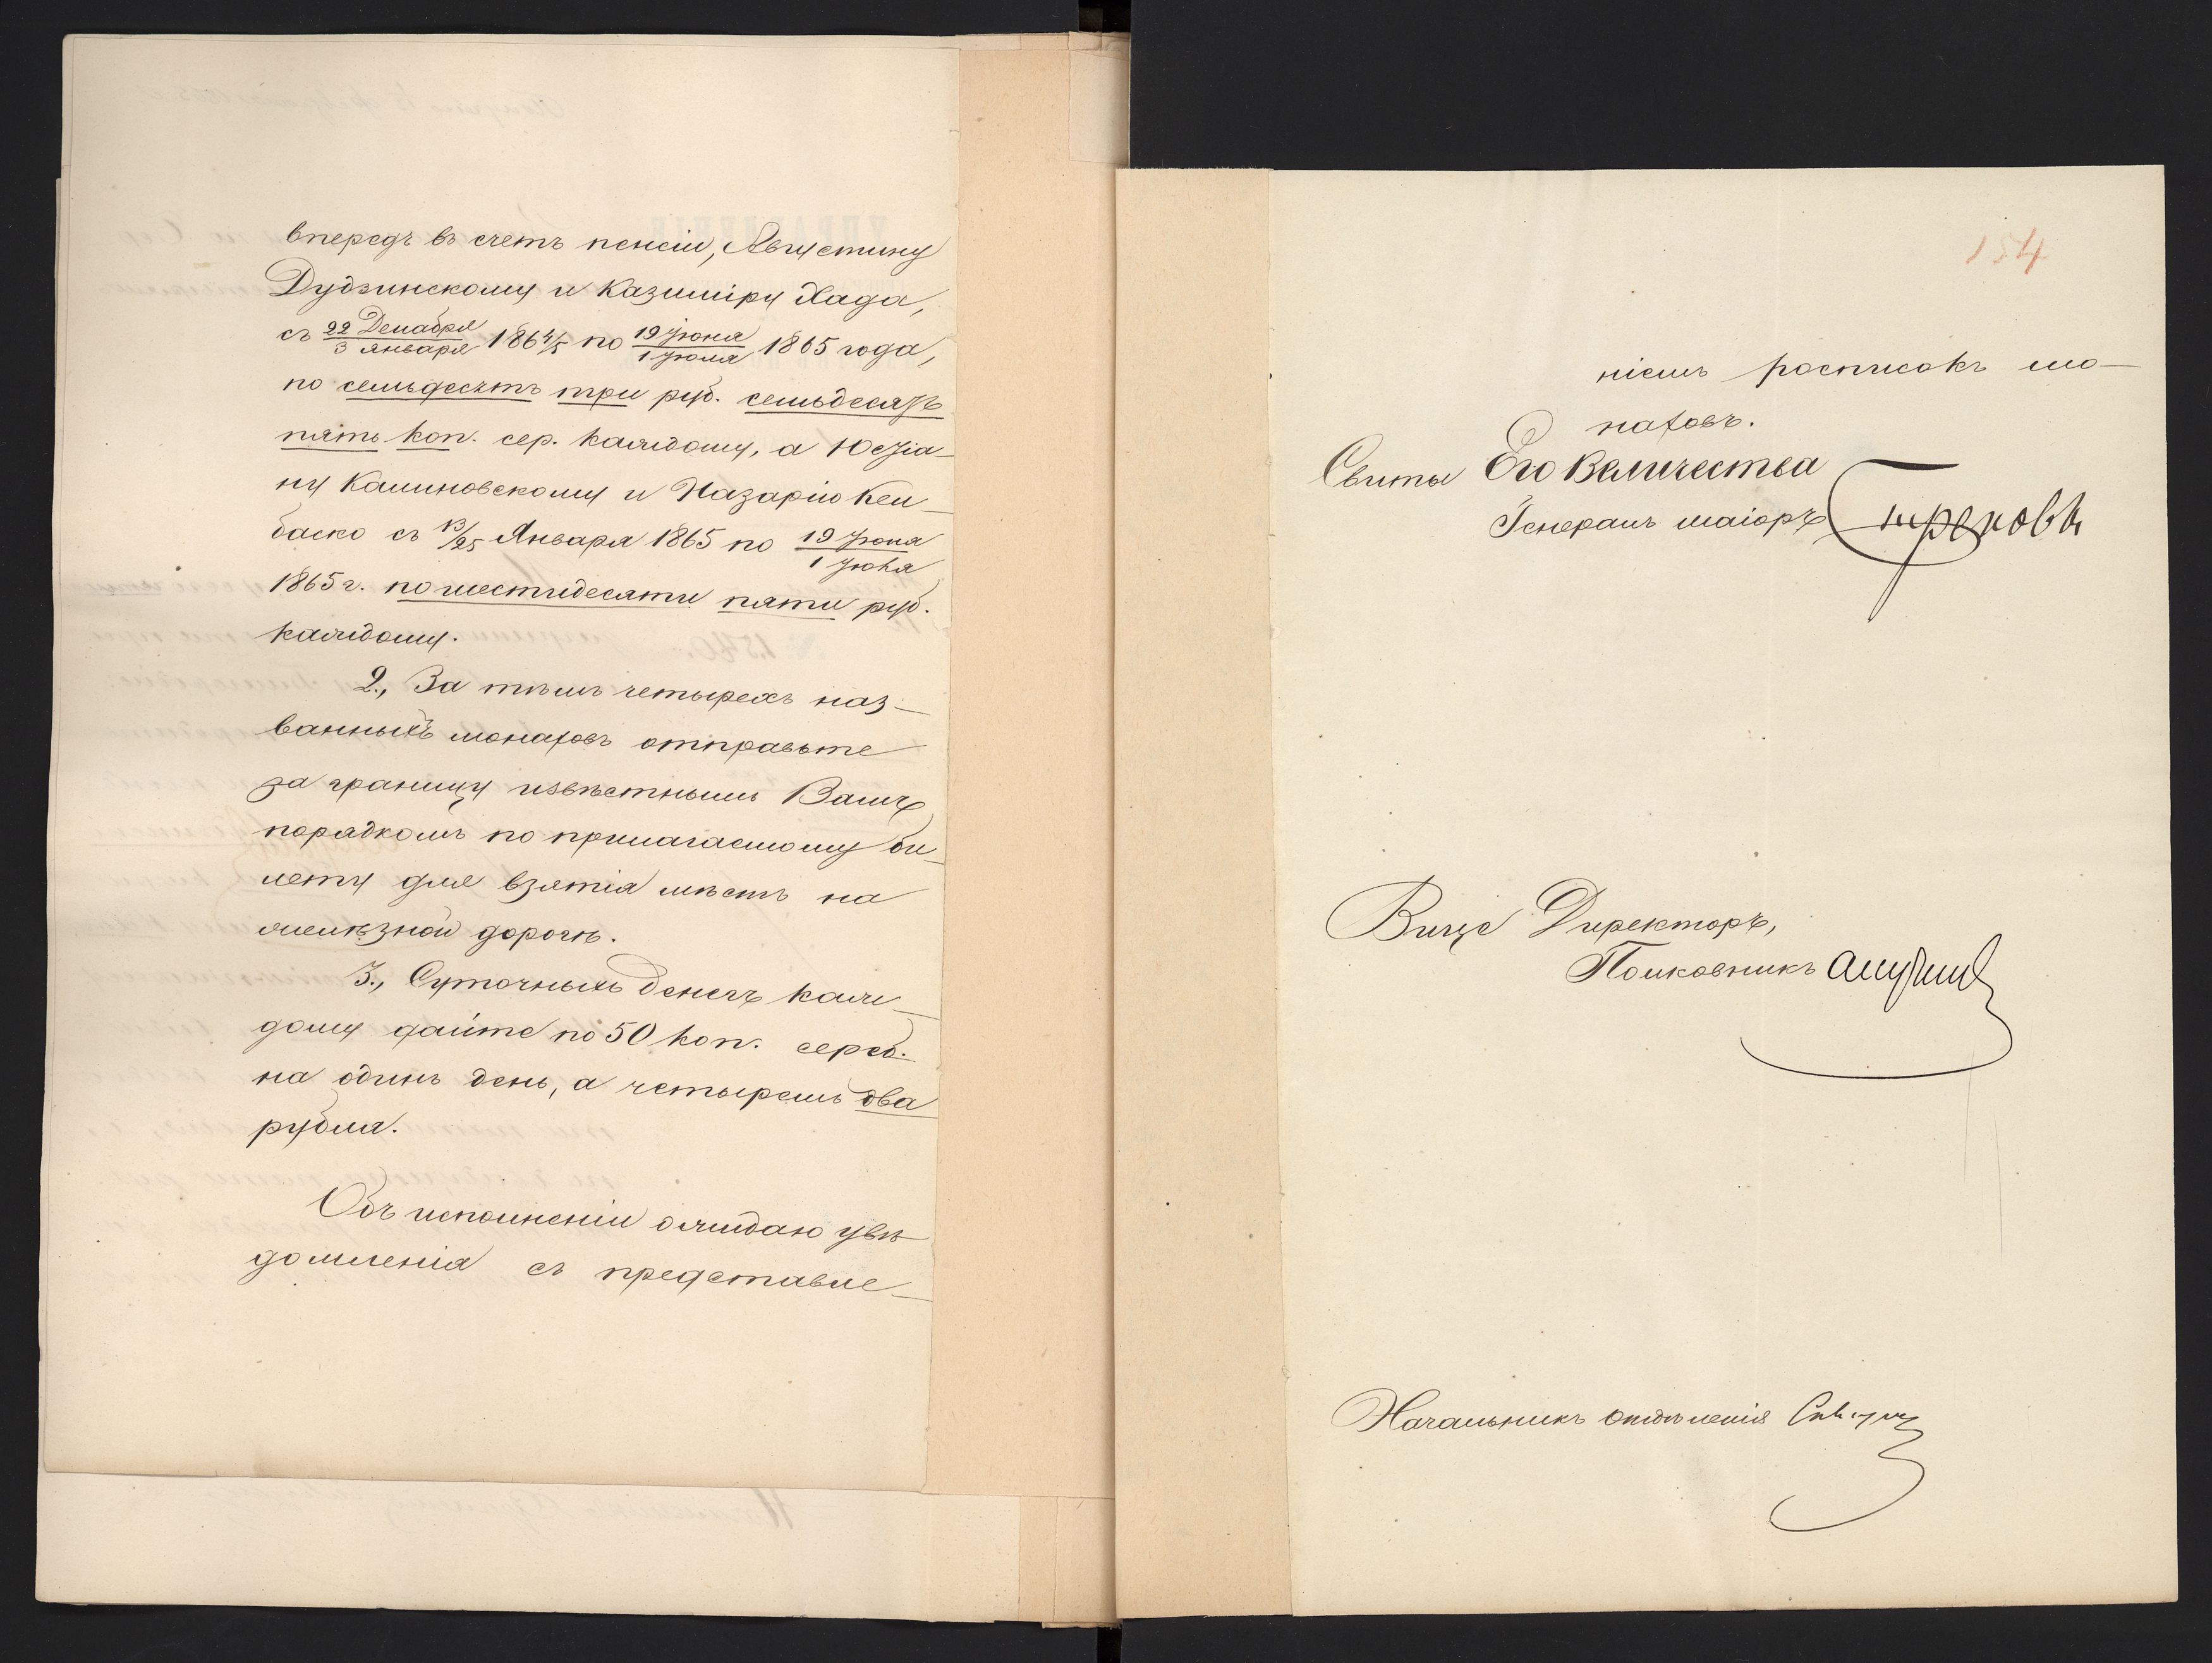 впередъ въ счетъ пенсіи, Августину
Дудзинскому и Казиміру Хада,
съ 22 Декабря/3 Января 1864/5 по 19 Іюня/1 Іюля 1865 года,
по семьдесятъ три руб. семьдесятъ
пять коп. сер. каждому, а Юсті-
ну Калиновскому и Назарію Кел-
баско съ 13/25 Января 1865 по 19 Іюня/1 Іюля
1865 г. по шестидесяти пяти руб.
каждому.
2., За тѣмъ четырехъ наз-
ванныхъ монаховъ отправьте
за границу извѣстнымъ Вамъ
порядкомъ по прилагаемому би-
лету для взятія мѣстъ на
желѣзной дорогѣ.
3., Суточныхъ денегъ каж-
дому дайте по 50 коп. сереб.
на одинъ день, а четыремъ два
рубля.
Объ исполненіи ожидаю увѣ-
домленія съ представле-
154
ніемъ росписокъ мо-
наховъ.
Свиты Его Величества
Генералъ маіоръ Треповъ
Вице Директоръ,
Полковникъ
Начальникъ отдѣленія